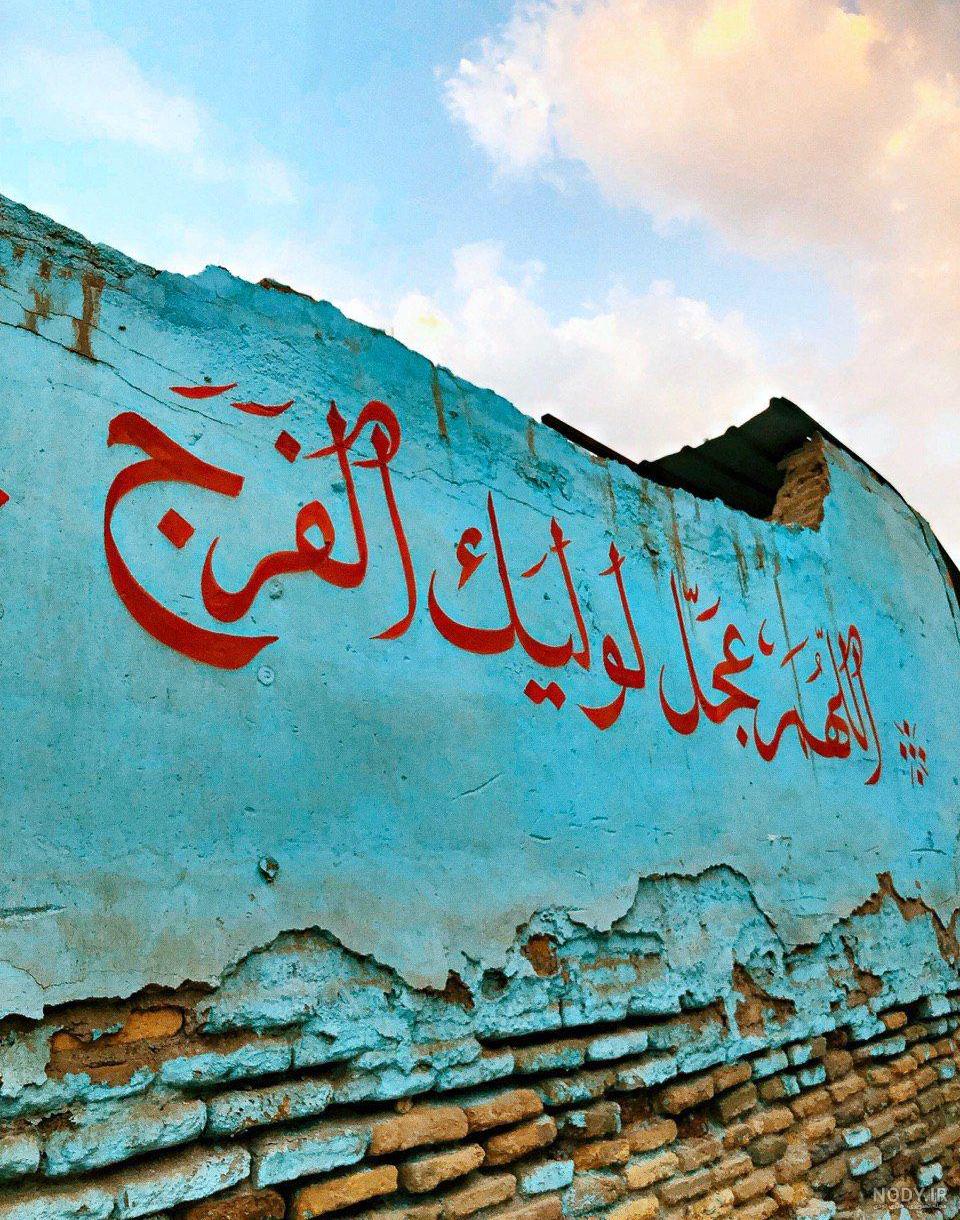 اللّهمَ عَجّل لوَليكَ الفَرَج
NODY.IR